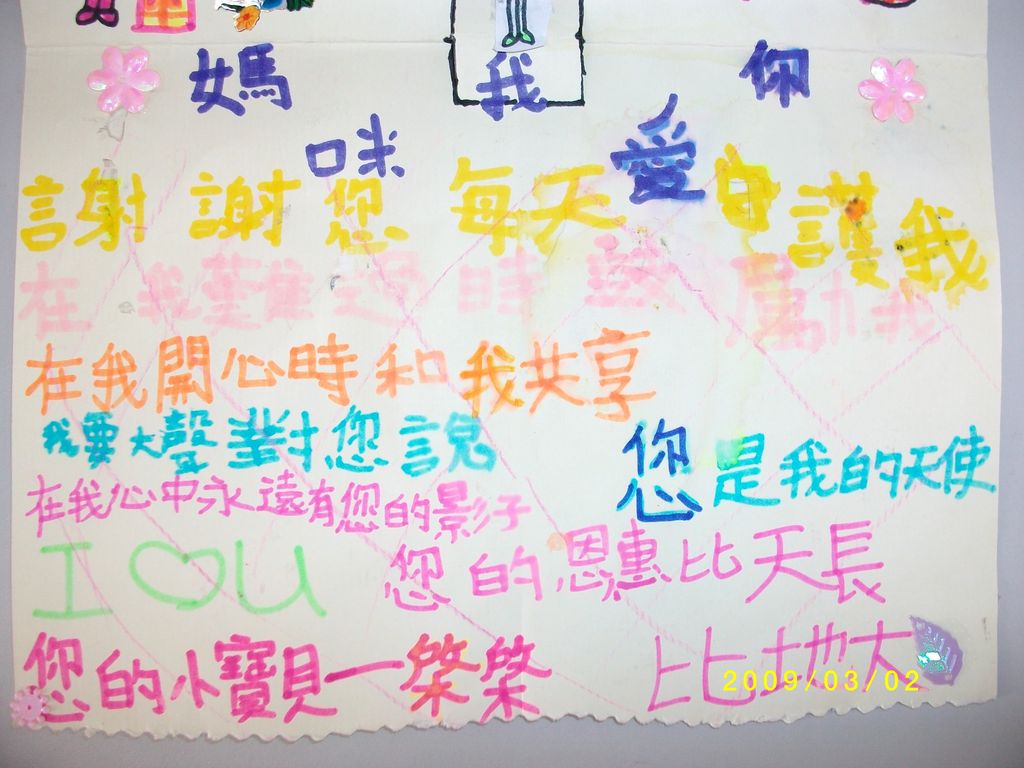 媽 我 你
咪 愛
謝謝您每天護我
在我難過時鼓勵我
在我開心時和我共享
我要大聲對您說 您是我的天使
在我心中永遠有您的影子
I ♡ U 您的恩惠比天長
您的小寶貝一棨棨 比地大
2009/03/02